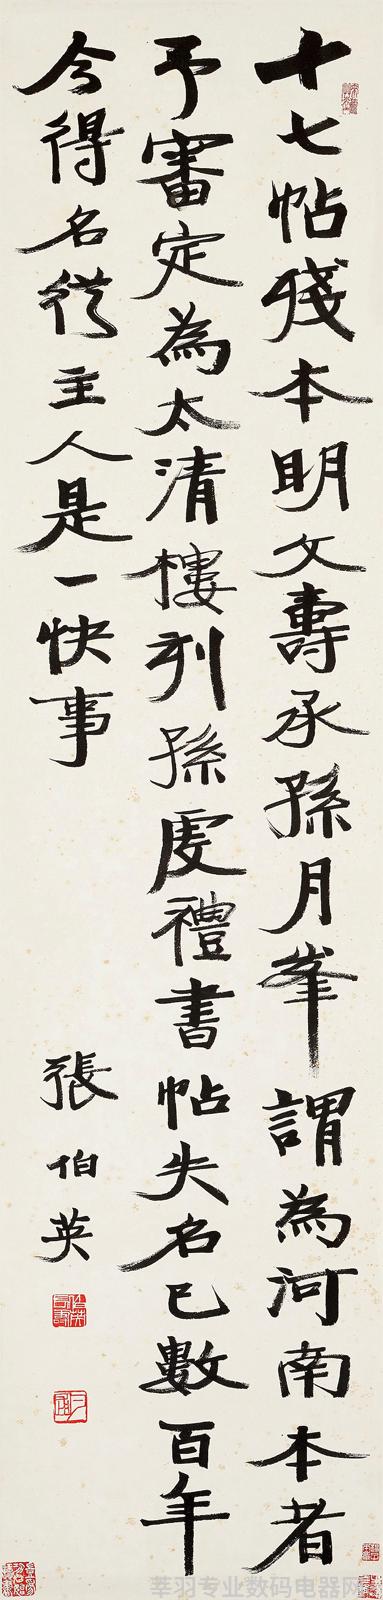 十七帖殘本明文壽承孫月峯謂為河南本者
予審定為太清樓列孫虔禮書帖失名已數百年
今得名從主人是一快事
張伯英
莘羽专业数码电器网